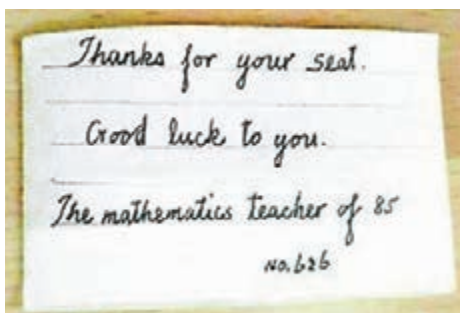 Thanks for your seat.
Good luck to you.
The mathematics teacher of 85
No.626